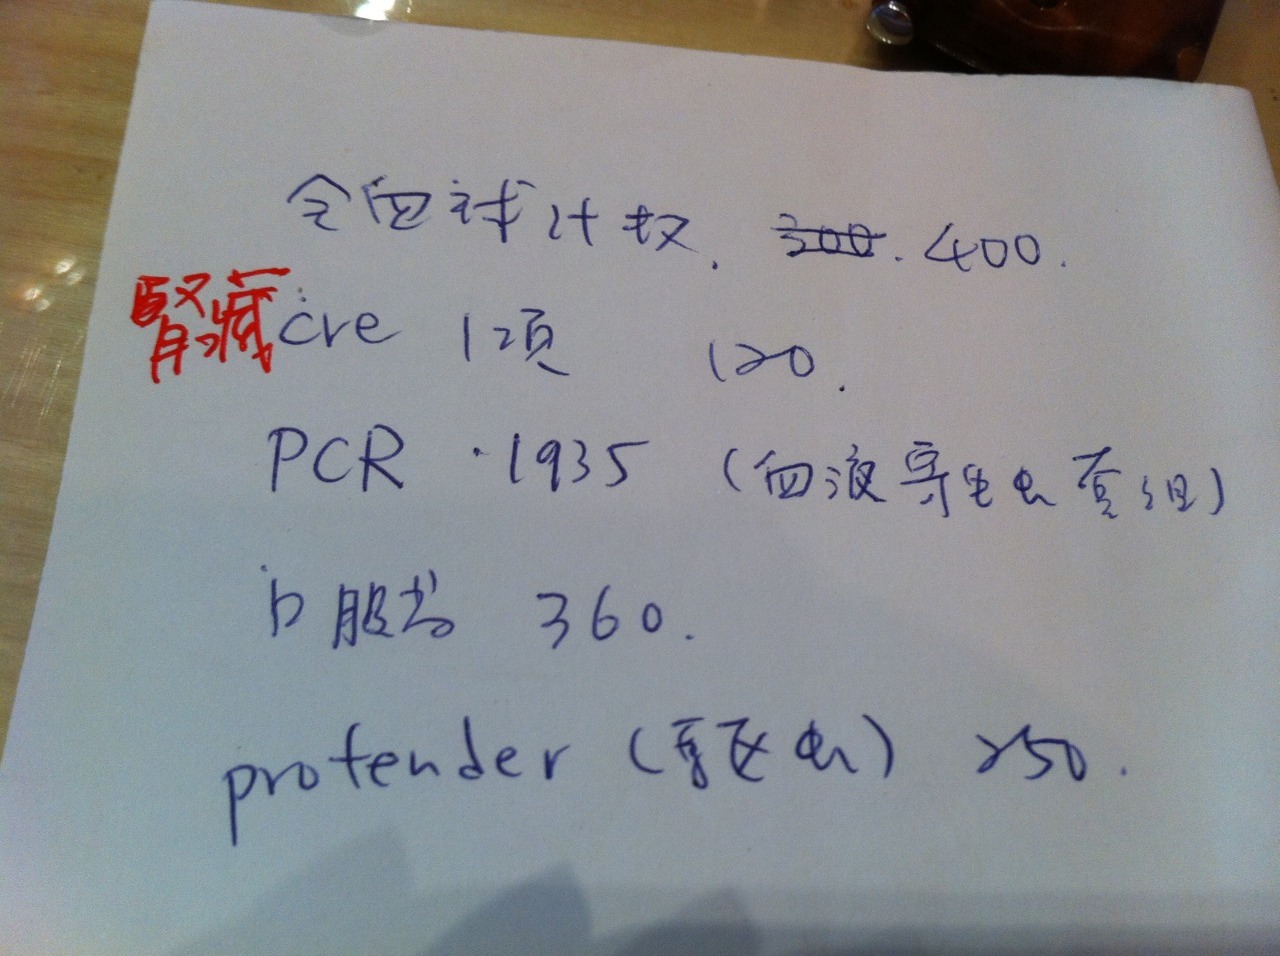 全血球计数. 300. 400.
腎臓 cre 1项 120.
PCR · 1935 (血液寄生虫套组)
口服药 360.
protender (驱虫) 250.